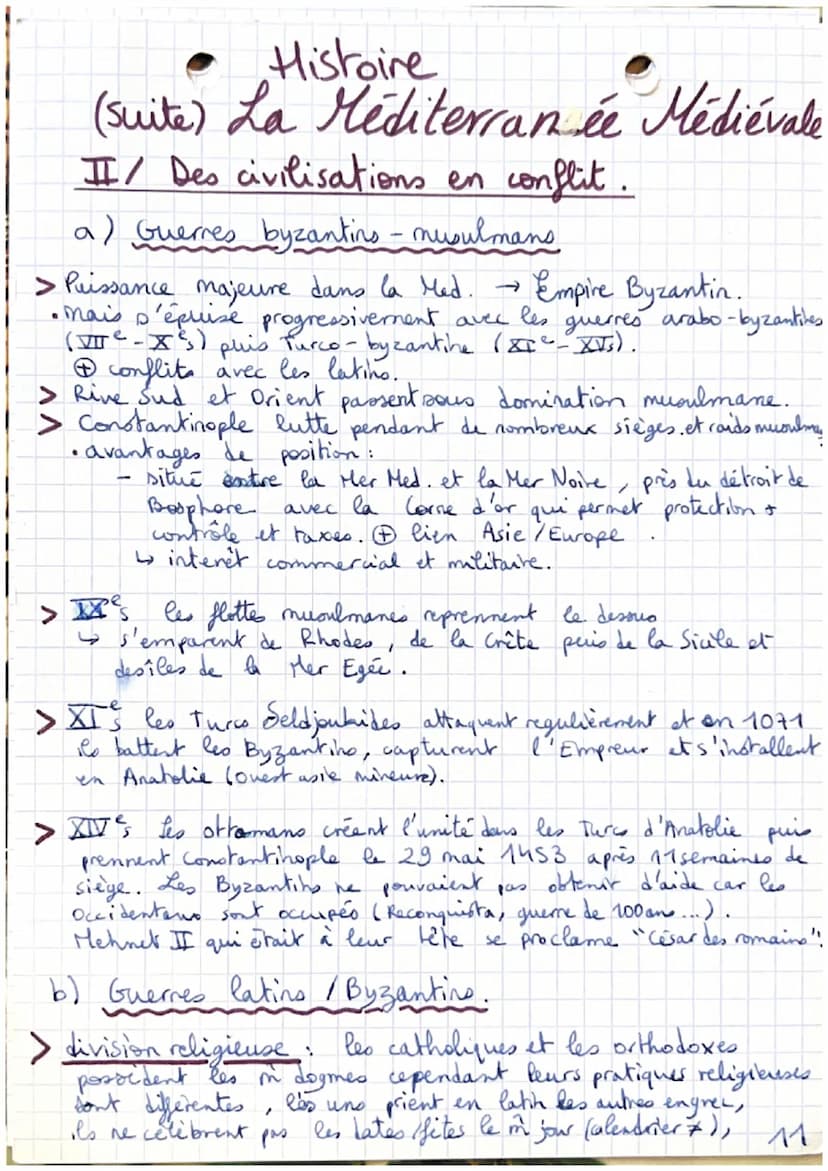 Histoire
(suite) La Méditerranée Médiévale
II/ Des civilisations en conflit.
a) Guerres byzantins - musulmans
> Puissance majeure dans la Med. → Empire Byzantin.
• mais s'épuise progressivement avec les guerres arabo-byzantines
(VIIe - Xe s) puis Turco-byzantine (XIe - XVs).
⊕ conflits avec les latins.
> Rive Sud et Orient passent sous domination musulmane.
> Constantinople lutte pendant de nombreux sièges.et raids musulma
• avantages de position :
- situé entre la Mer Med. et la Mer Noire, près du détroit de
Bosphore avec la Corne d'or qui permet protection +
contrôle et taxes. ⊕ lien Asie/Europe.
↳ interêt commercial et militaire.
> IXe s les flottes musulmanes reprennent le dessus
↳ s'emparent de Rhodes, de la Crête puis de la Sicile et
des îles de la Mer Egée.
> XIe s les Turcs Seldjoukides attaquent regulièrement et en 1071
ils battent les Byzantins, capturent l'Empreur et s'installent
en Anatolie (ouest asie mineure).
> XIVe s Les ottomans créent l'unité dans les Turcs d'Anatolie puis
prennent Constantinople le 29 mai 1453 après 11 semaines de
siège. Les Byzantins ne pouvaient pas obtenir d'aide car les
Occidentaux sont occupés (Reconquista, guerre de 100 ans ...).
Mehmet II qui était à leur tête se proclame "César des romains".
b) Guerres latins / Byzantins.
> division religieuse : les catholiques et les orthodoxes
possèdent les m̂ dogmes cependant leurs pratiques religieuses
sont différentes, les uns prient en latin les autres en grec,
ils ne célèbrent pas les dates/fêtes le m̂ jour (calendrier ≠),
11